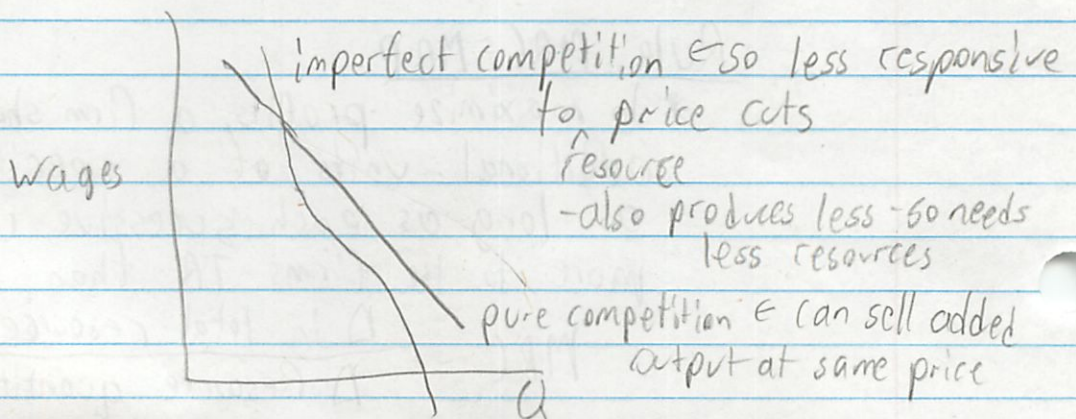 imperfect competition ← so less responsive
to price cuts
^
resource
Wages
-also produces less -so needs
less resources
pure competition ← can sell added
output at same price
Q